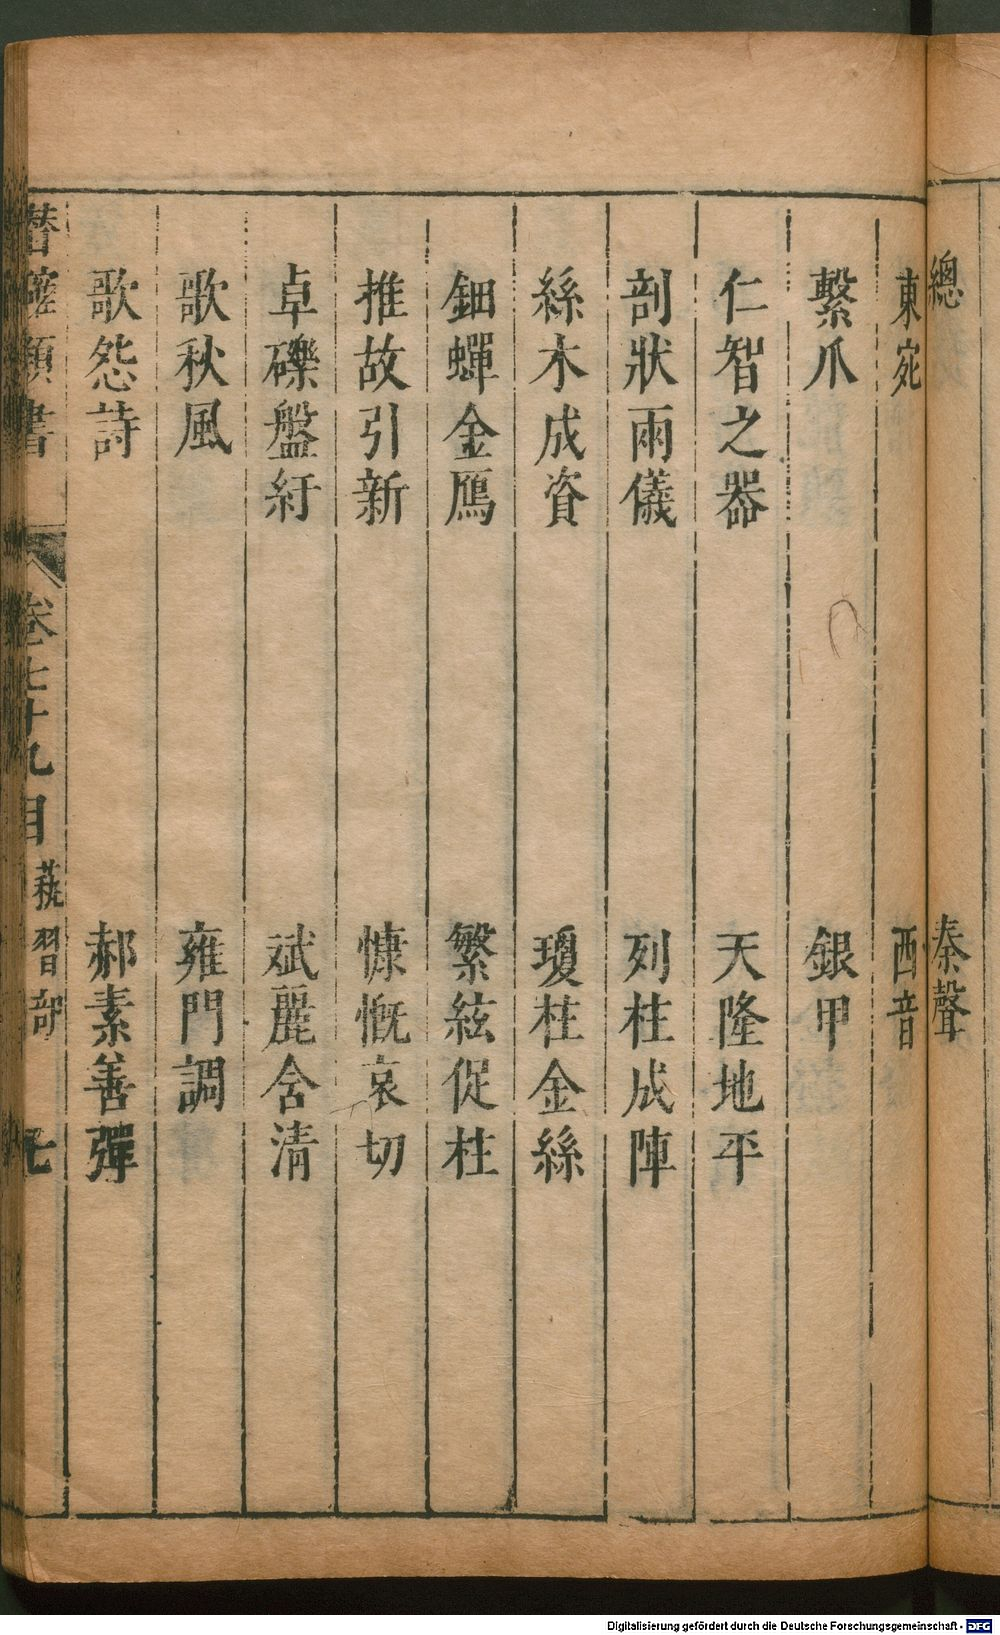 總 秦聲
東宛 西音
繫爪 銀甲
仁智之器 天隆地平
剖狀兩儀 列柱成陣
絲木成資 瓊柱金絲
鈿蟬金鴈 繁絃促柱
推故引新 慷慨哀切
卓礫盤紆 斌麗含清
歌秋風 雍門調
歌怨詩 郝素善彈
潛確類書 卷七十九目 藝習部 七
Digitalisierung gefördert durch die Deutsche Forschungsgemeinschaft - DFG